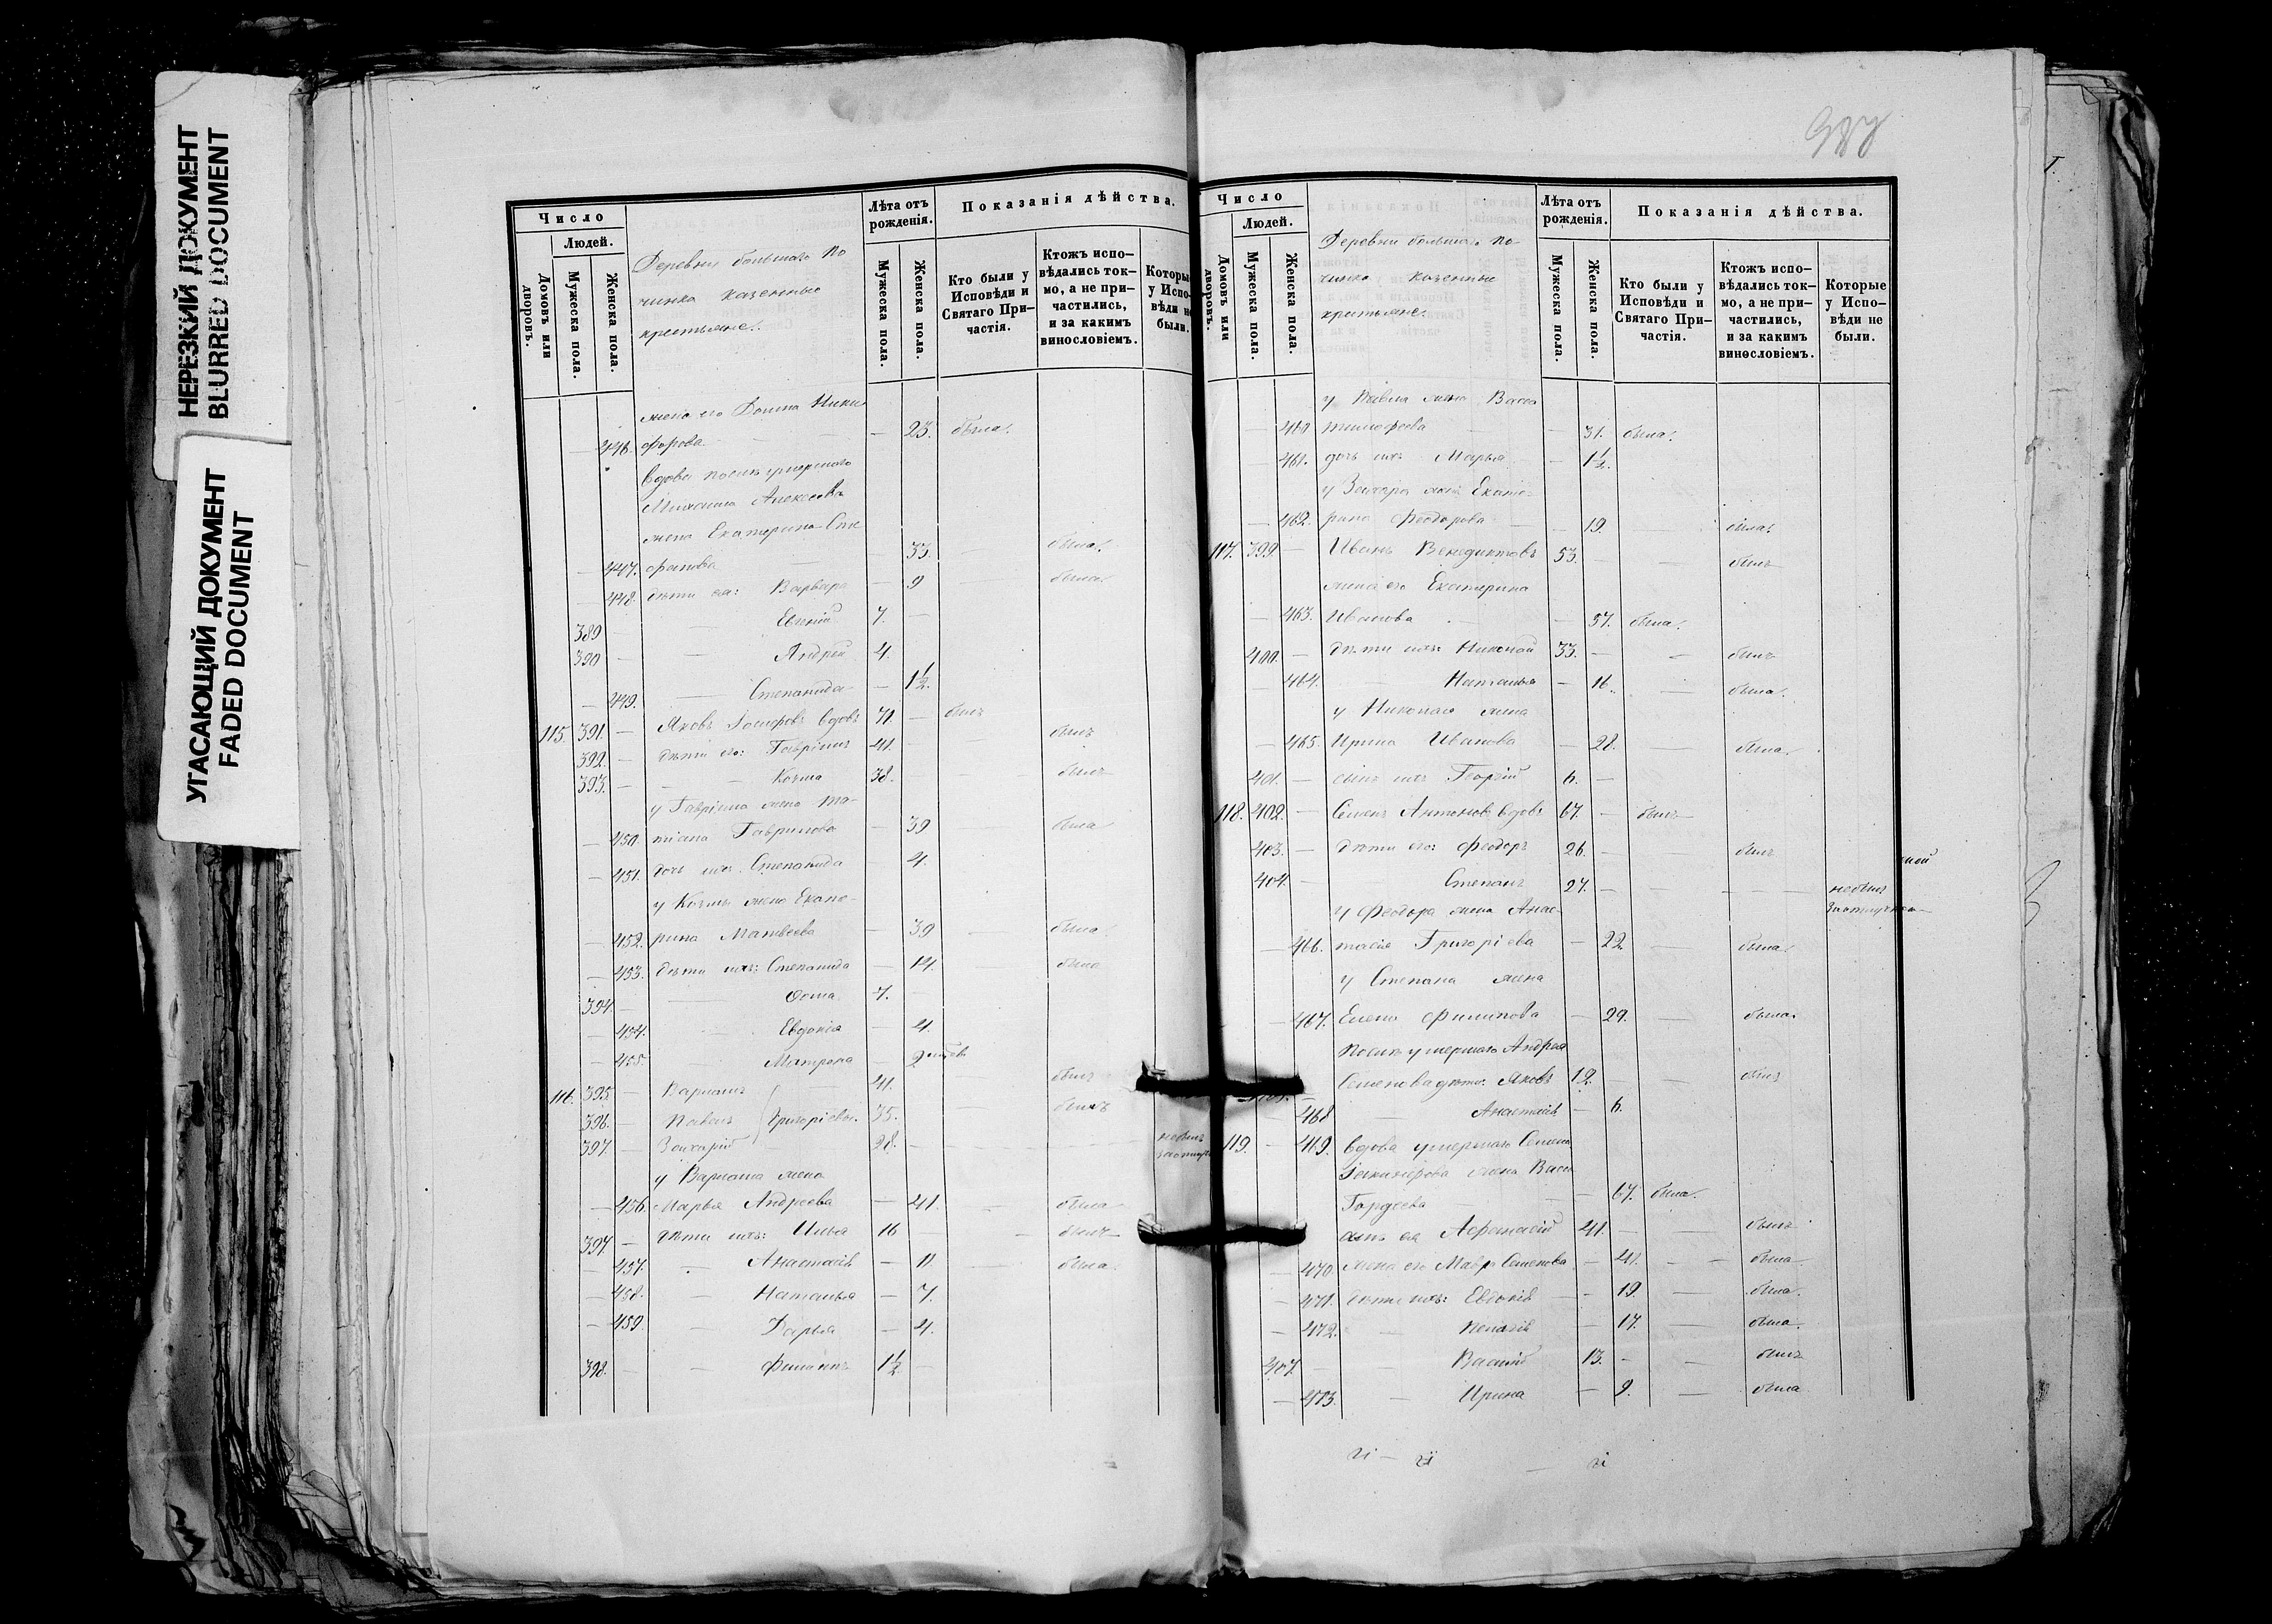 НЕРЕЗКИЙ ДОКУМЕНТ
BLURRED DOCUMENT
УГАСАЮЩИЙ ДОКУМЕНТ
FADED DOCUMENT
Число
Людей.
Домовъ или дворовъ.
Мужеска пола.
Женска пола.
Деревни большаго По
чинка казенные
крестьяне.
Лѣта отъ рожденія.
Мужеска пола.
Женска пола.
Показанія дѣйства.
Кто были у Исповѣди и Святаго Причастія.
Ктожъ исповѣдались токмо, а не причастились, и за какимъ винословіемъ.
Которые у Испо- вѣди не были.
жена его Домна Ники
446. форова — 23. была.
вдова послѣ умершаго
Михаила Алексѣева
жена Екатерина Сте
447. фанова — 33. — была.
448. дѣти ея: Варвара — 9 — была
389 — — Евгений 7. —
390 — — Андрей 4.
449. — Степанида — 1½.
115. 391. — Яковъ вдовъ 71. — былъ
392. — дѣти его: Гаврiилъ 41. былъ
393. — — Козма 38. — былъ
у Гаврiила жена Та-
450. тiана Гаврилова — 39 — была
451. дочь ихъ Степанида — 4.
у Козмы жена Екате-
452. рина Матвеева — 39 — была
453. дѣти ихъ: Степанида — 14. была
394. — Фома 7. —
454. Евдокiя — 4.
455. Матрена — 2
116. 395 — Варлаамъ 41. былъ
396. — Павелъ Григорiевы. 35. — былъ
397. — Захарiй 28. — не былъ
у Варлаама жена
456. Марья Андреева — 41. — была
397. — дѣти ихъ: Илья 16 — — былъ
457. — Анастасiя — 11 — была
458. — Наталья — 7.
459. — Дарья — 4.
398. — — Филиппъ 1½. —
Число
Людей.
Домовъ или дворовъ.
Мужеска пола.
Женска пола.
Деревни большаго По-
чинка казенные
крестьяне.
Лѣта отъ рожденія.
Мужеска пола.
Женска пола.
Показанія дѣйства.
Кто были у Исповѣди и Святаго Причастія.
Ктожъ исповѣдались токмо, а не причастились, и за какимъ винословіемъ.
Которые у Исповѣди не были.
у Павла жена Васса
460 Тимофеева — 31. была.
461. дочь ихъ Марья — 1½.
у Захара жена Екате-
462. рина Феодорова — 19. была
117. 399 — Иванъ Венедиктовъ 53. — — былъ
жена его Екатерина
463. Иванова — 57. была.
400. — дѣти ихъ: Николай 33. — — былъ
464. — Наталья — 16. — была.
у Николая жена
465. Ирина Иванова — 28. — была.
401. — сынъ ихъ Георгiй 6. —
118. 402. — Семенъ Антоновъ вдовъ 67. — былъ
403. — дѣти его: Феодоръ 26. — былъ
404. — Степанъ 27. — — — не былъ
у Феодора жена Анас-
466. тасiя Григорiева — 22. — была.
у Степана жена
467. Елена Филипова — 29. — была.
Послѣ умершаго Андрея
Семенова дѣти: Яковъ 12. — — былъ
468 — Анастасiя — 6.
119. — 469. вдова умершаго Семена
жена Васса
Гордеева — 67. была.
сынъ ея Афанасiй 41. — — былъ
470 жена его Мавра Семенова — 41. — была
471. дѣти ихъ: Евдокiя — 19. — была.
472. — Пелагiя — 17. — была.
407. — Василiй 13. — — былъ
473. — Ирина — 9. — была